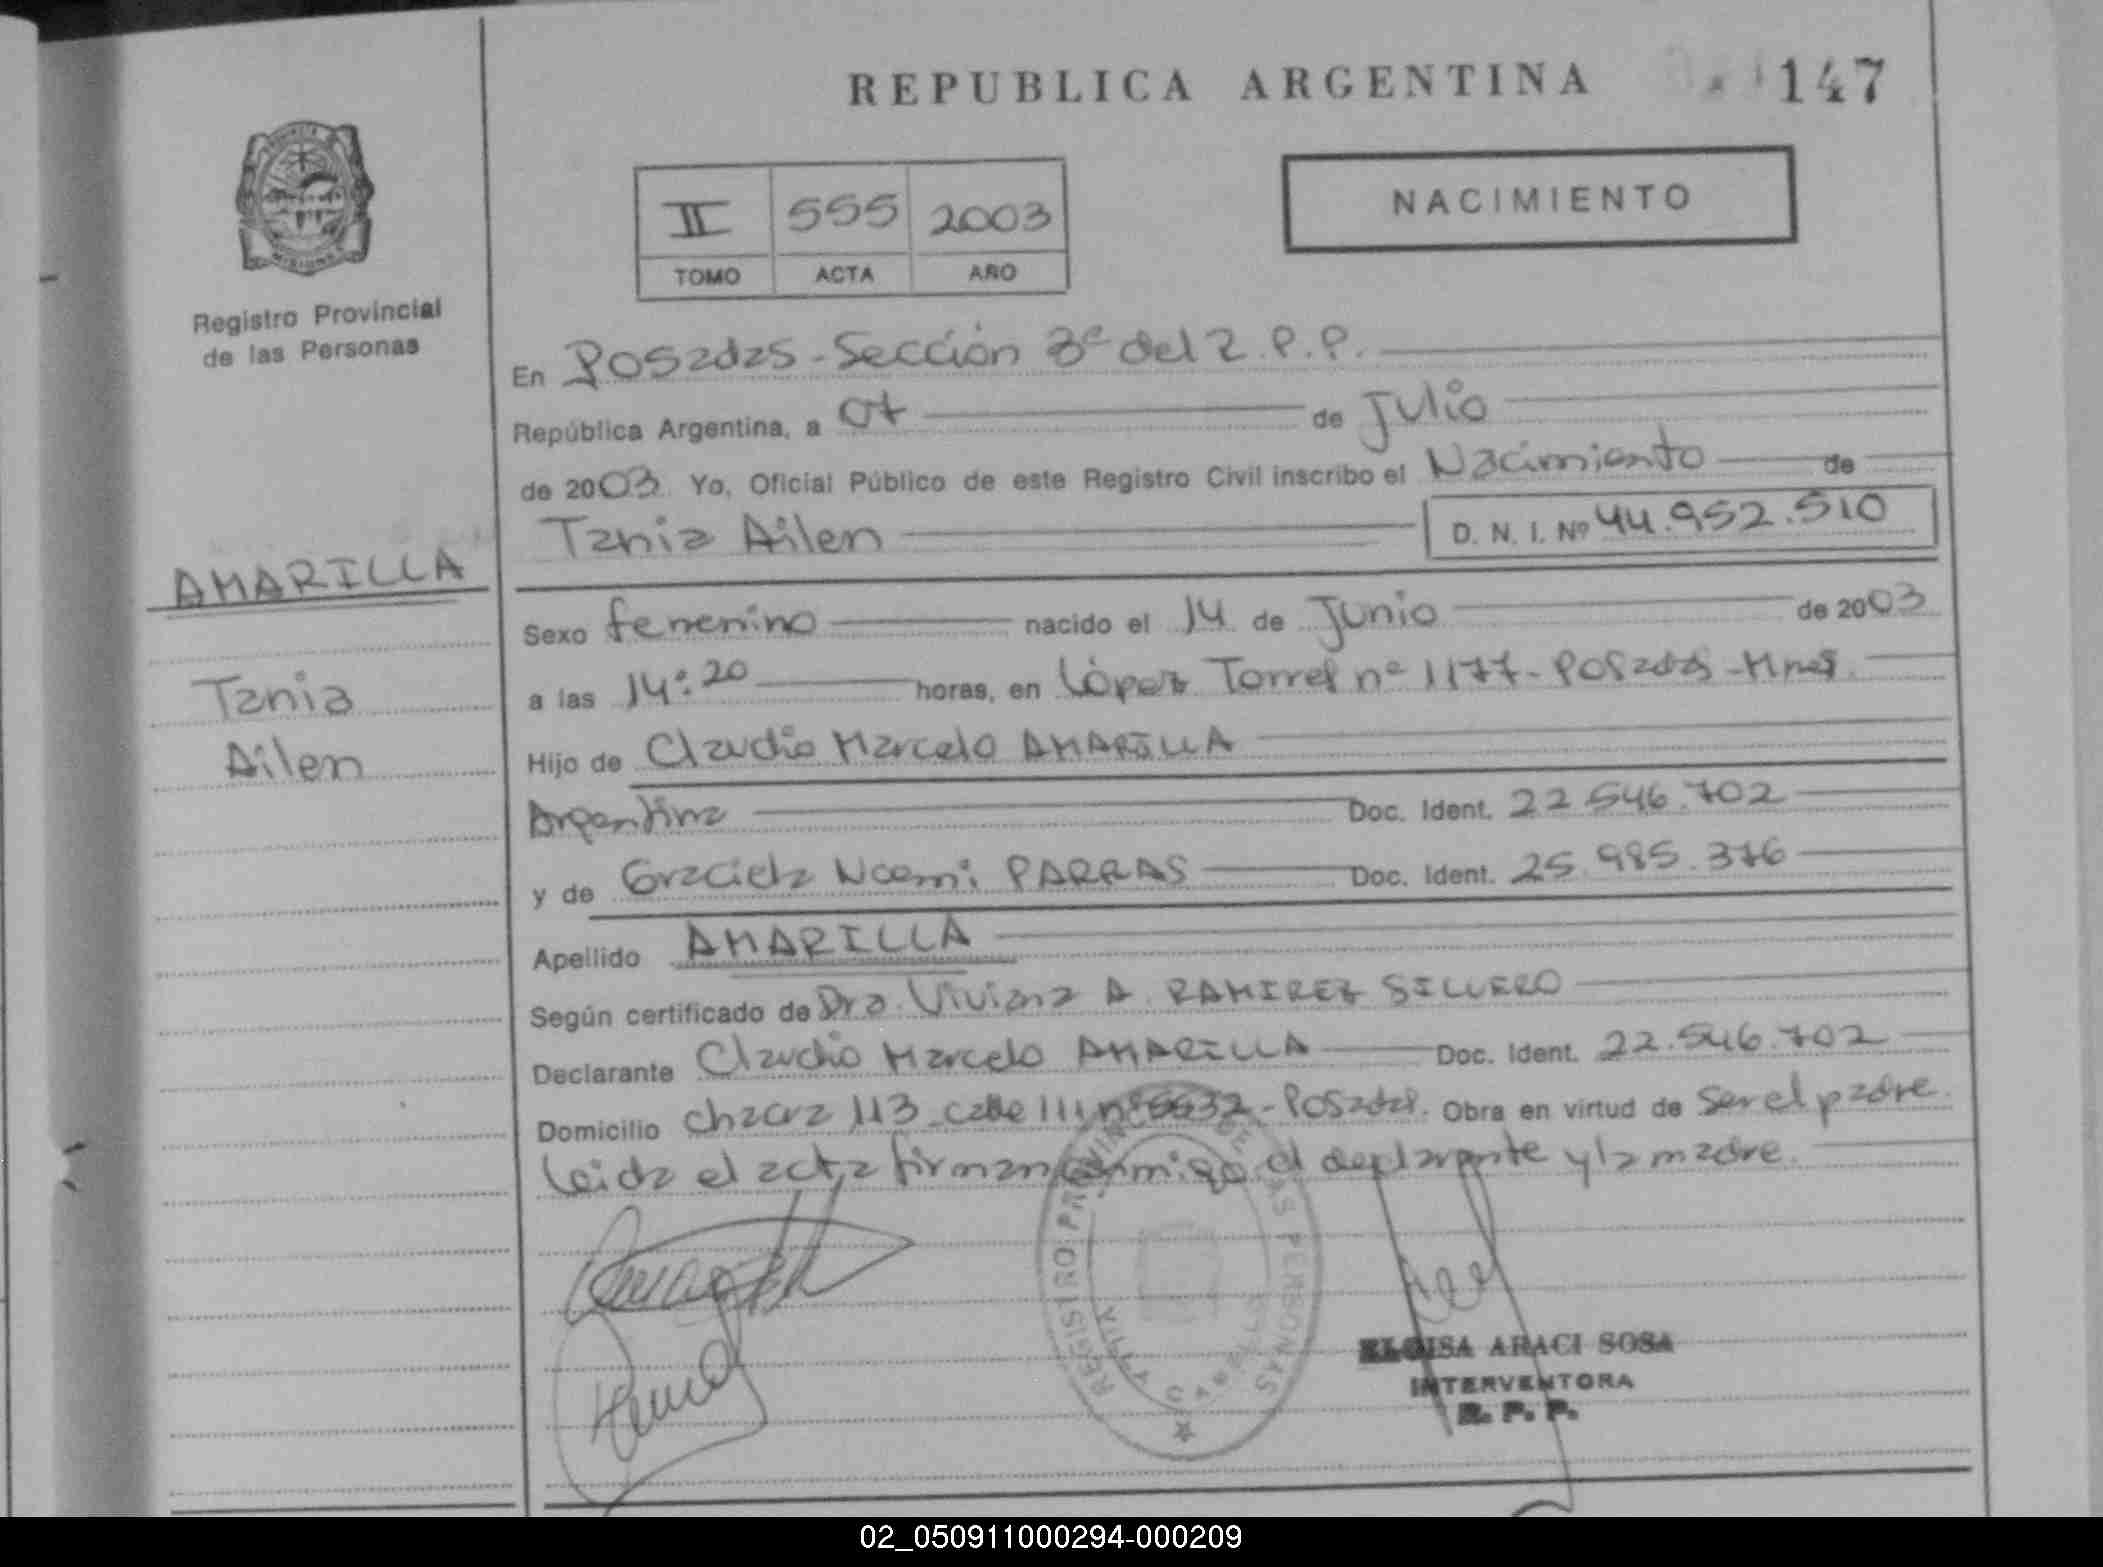 REPUBLICA ARGENTINA 147
II 555 2003
TOMO ACTA AÑO
NACIMIENTO
Registro Provincial
de las Personas
En Posadas - Sección 3ª del R.P.P.
República Argentina, a 07 de Julio
de 2003 Yo, Oficial Público de este Registro Civil inscribo el Nacimiento de
Tania Ailen D. N. I. Nº 44.952.510
AMARILLA
Tania
Ailen
Sexo femenino nacido el 14 de Junio de 2003
a las 14:20 horas, en López Torres nº 1177 - Posadas - Mnes.
Hijo de Claudio Marcelo AMARILLA
Argentina Doc. Ident. 22.546.702
y de Graciela Noemi PARRAS Doc. Ident. 25.985.376
Apellido AMARILLA
Según certificado de Dra. Viviana A. RAMIREZ SILLERO
Declarante Claudio Marcelo AMARILLA Doc. Ident. 22.546.702
Domicilio chacra 113 calle 111 nº - Posadas. Obra en virtud de ser el padre.
leida el acta firman conmigo el declarante y la madre.
REGISTRO PROVINCIAL DE LAS PERSONAS
ELOISA ARACI SOSA
INTERVENTORA
R. P. P.
02_050911000294-000209